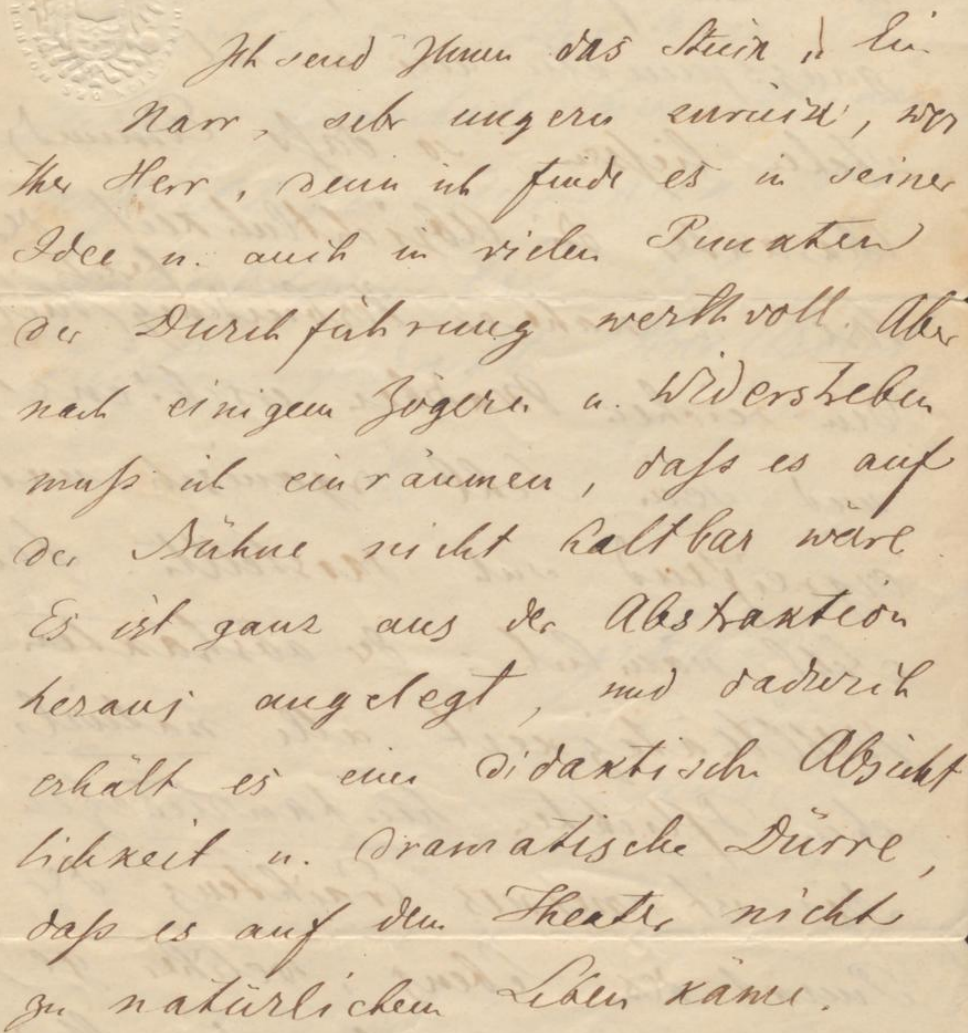 Ich send Ihnen das Stück, Ein
Narr, sehr ungern zurück, wer
ther Herr, denn ich finde es in seiner
Idee u. auch in vielen Punkten
der Durchführung werthvoll. Aber
nach einigem Zögern u. Widerstreben
muß ich einräumen, daß es auf
der Bühne nicht haltbar wäre.
Es ist ganz aus der Abstraktion
heraus angelegt, und dadurch
erhält es eine didaktische Absicht
lichkeit u. dramatische Dürre,
daß es auf dem Theater nicht
zu natürlichem Leben käme.